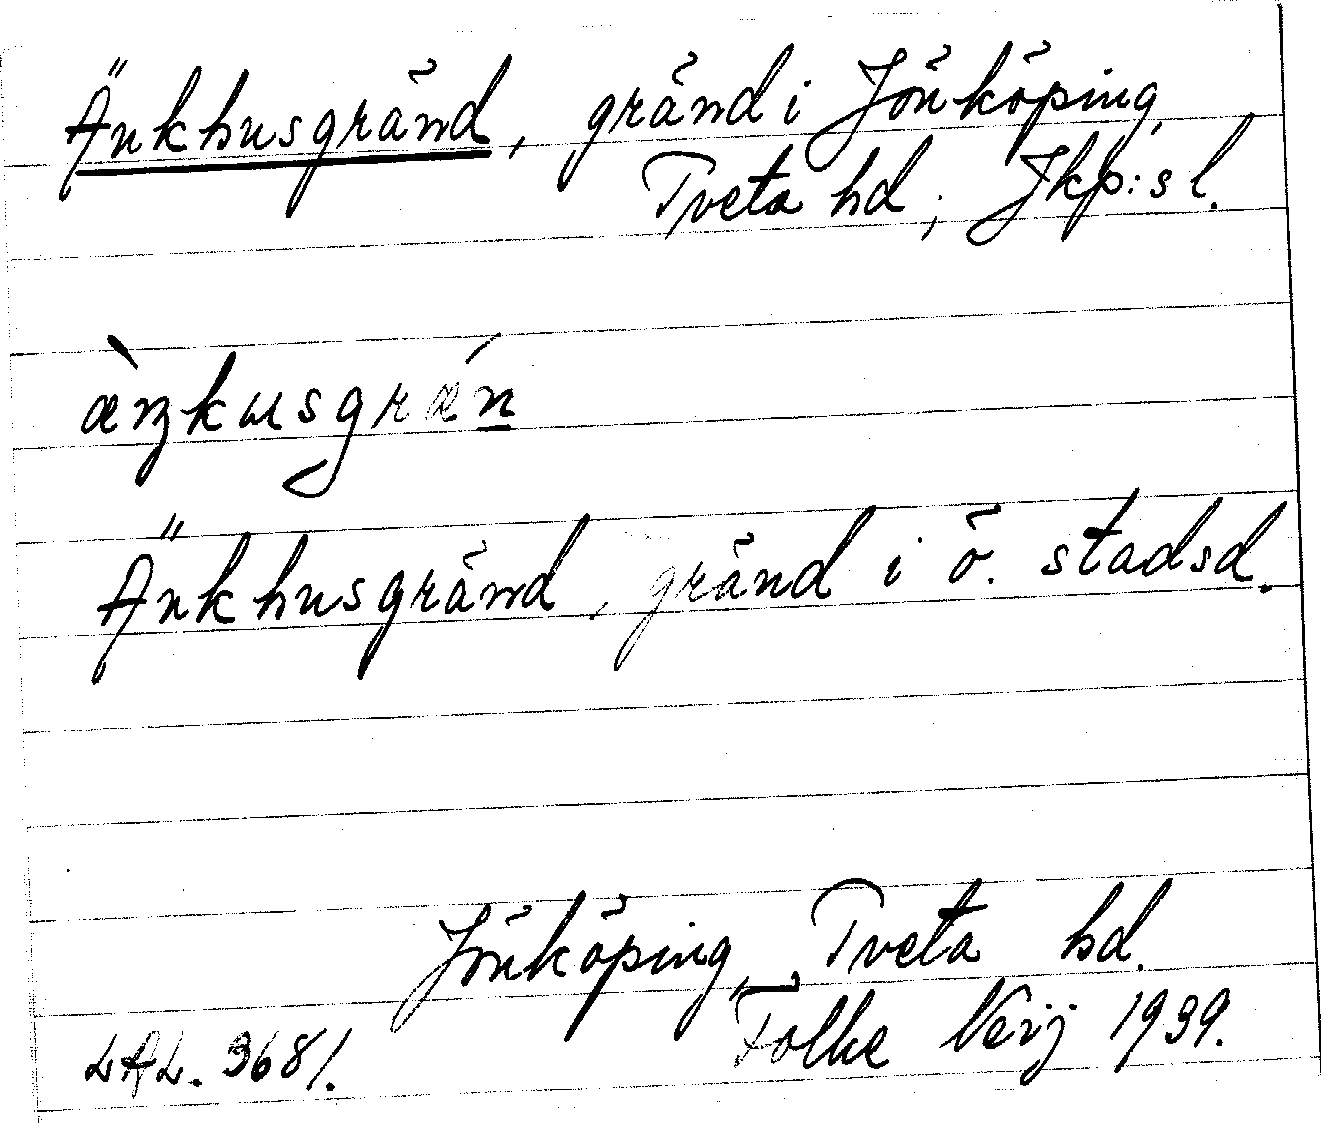 Änkhusgränd, gränd i Jönköping,
Tveta hd, Jkp:s l.
æ̀ŋkusgrǽn
Änkhusgränd, gränd i ö. stadsd.
Jönköping, Tveta hd.
LAL. 3681. Folke Neij 1939.